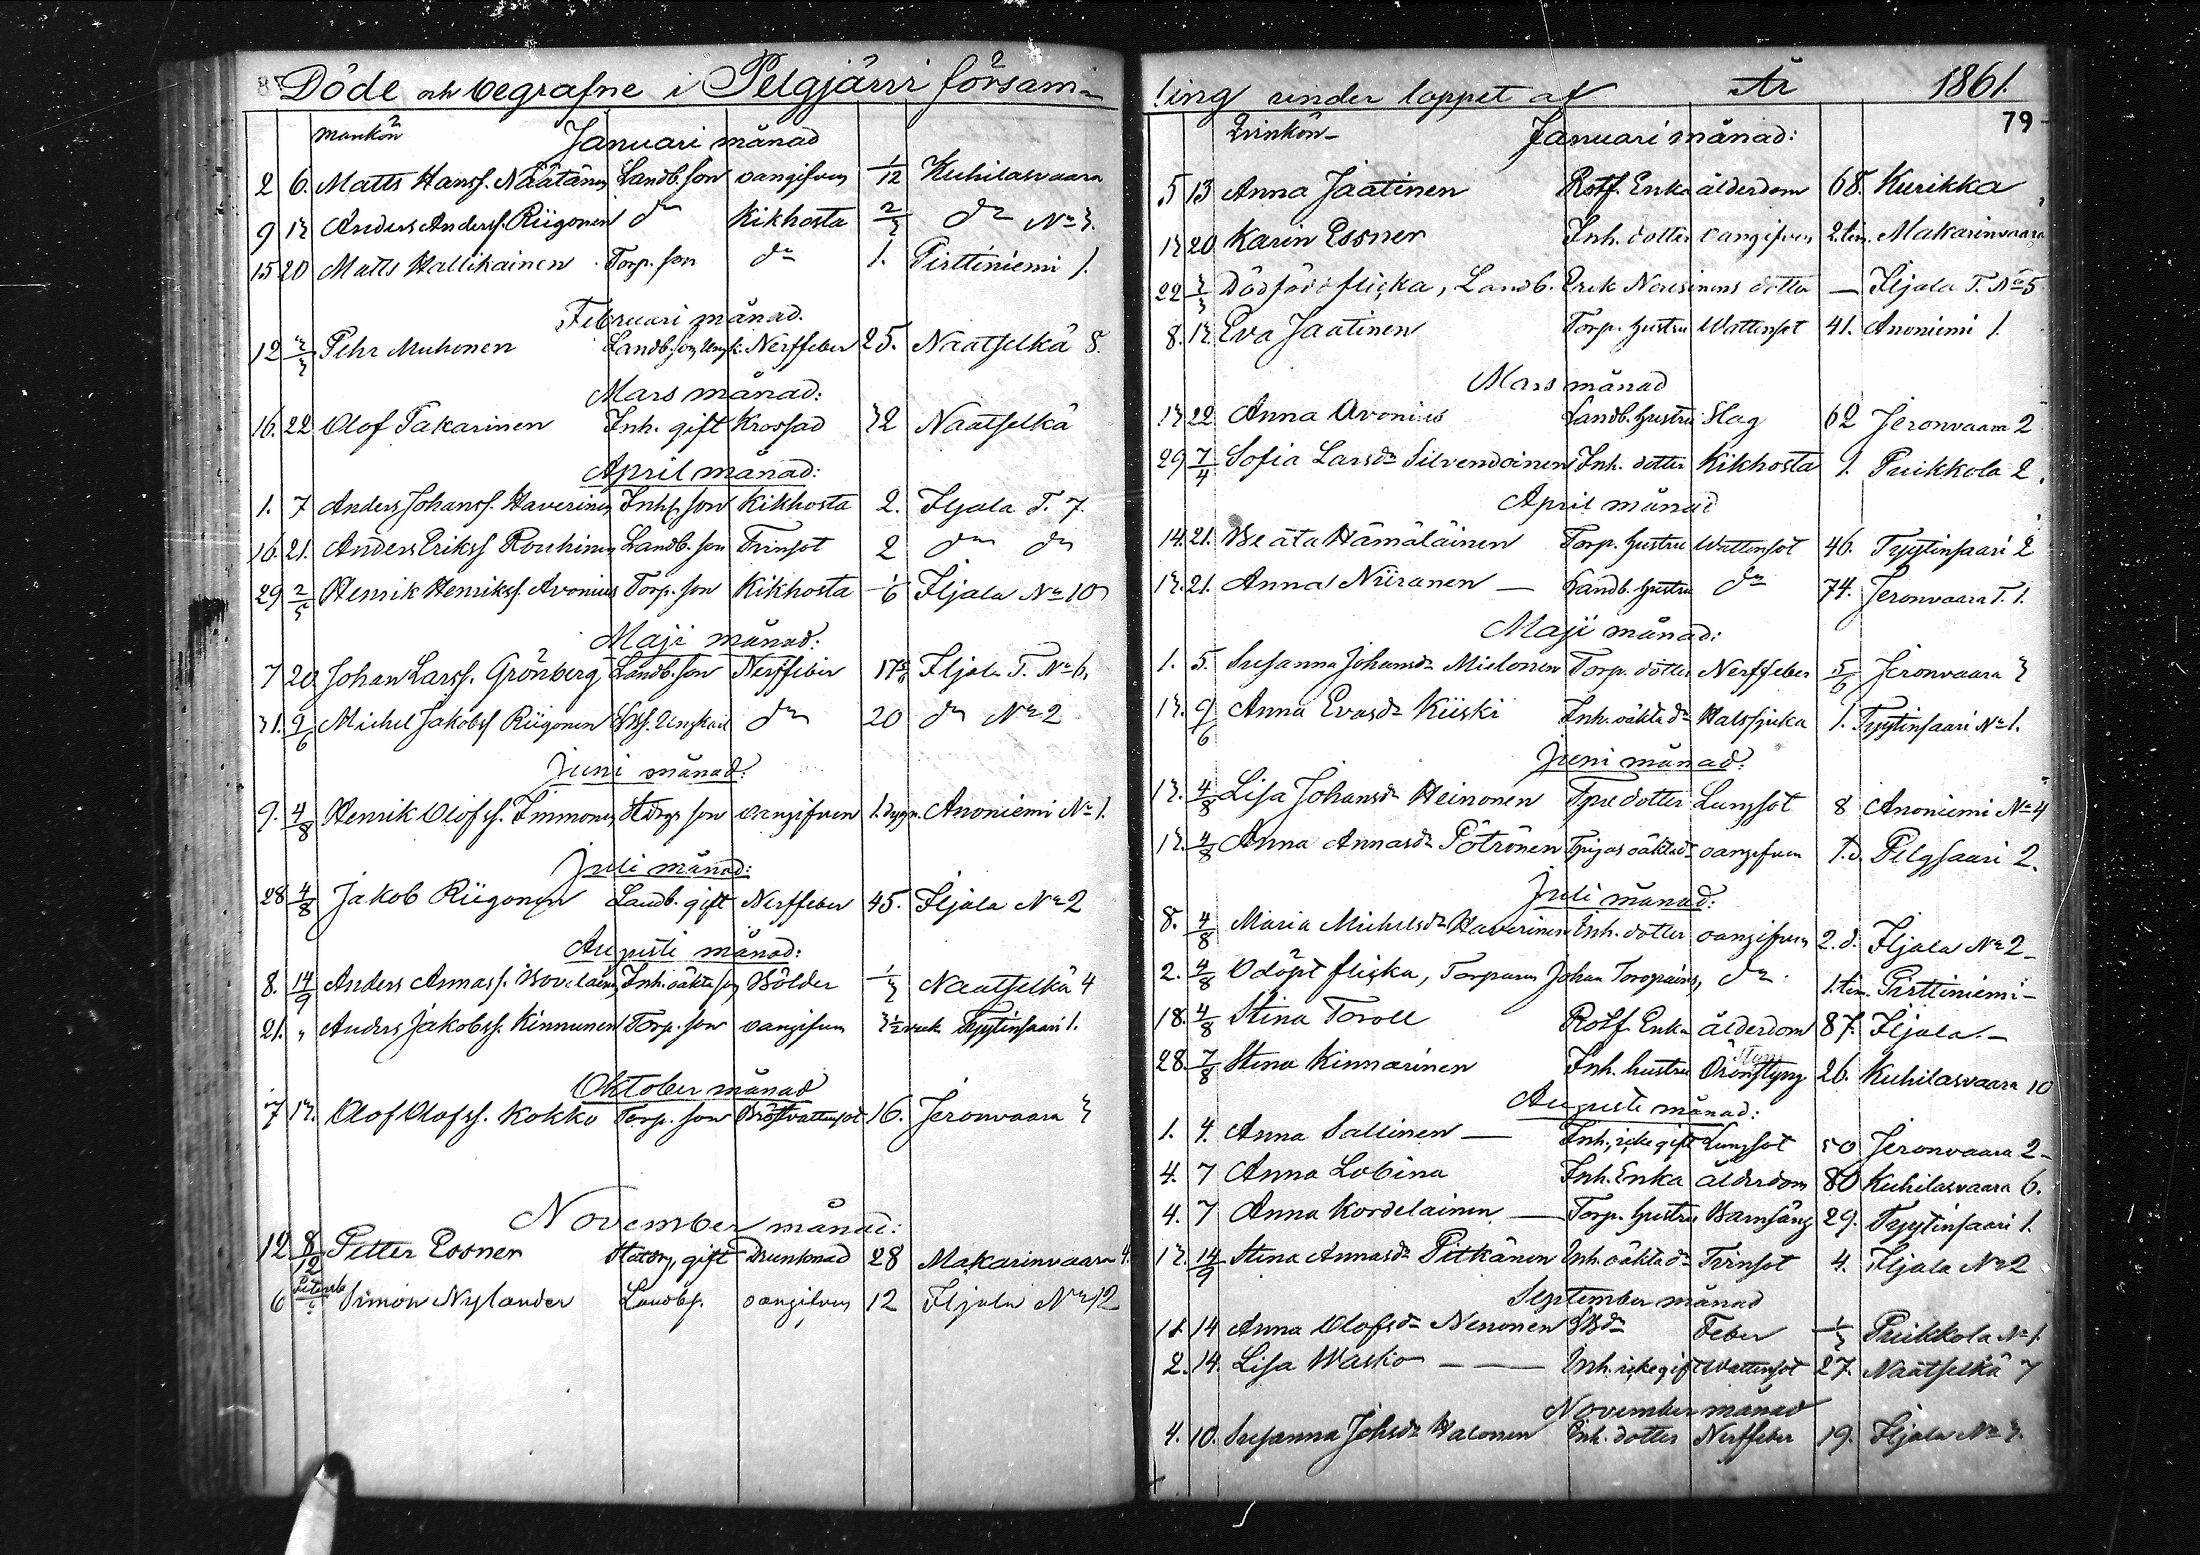 Döde och begrafne i Pelgjärvi försam-
mankön Januari månad
2 6. Matts Hanss. Näätänen Landb. son oangifven 1/12 Kuhilasvaara
9 13 Anders Anderss. Riigonen do Kikhosta 2/3 do No 3.
15 20 Matts Hallikainen Torp. son do 1. Pirttiniemi 1.
Februari månad.
12 3/3 Pehr Muhonen Landb. son, Ungk. Nerffeber 25. Naatselkä 8.
Mars månad:
16. 22 Olof Takarinen Inh. gift Krossad 32 Naatselkä
April månad:
1. 7 Anders Johanss. Haverinen Inh. son Kikhosta 2. Iljala T. 7.
16. 21. Anders Erikss Rouhinen Landb. son Tvinsot 2 do do
29 2/5 Henrik Henrikss. Avonius Torp. son Kikhosta 1/6 Iljala No 10
Maji månad:
7 20 Johan Larss. Grönberg Landb. son Nerffeber Iljala T. No 6.
31. 9/6 Michel Jakobss Riigonen Ungkarl do 20 do No 2
Juni månad:
9. 4/8 Henrik Olofss. Immonen son oangifven 1. dygn. Anoniemi No 1.
Juli månad:
28 4/8 Jakob Riigonen Landb. gift Nerffeber 45. Iljala No 2
Augusti månad:
8. 14/9 Anders Annass. Inh. oäkta son Bölder 1/3 Naatselkä 4
21. " Anders Jakobss. Kinnunen Torp. son oangifven 3 1/2 veck Tyytinsaari 1.
Oktober månad
7 13. Olof Olofss. Kokko Torp. son Bröstvattusot 16. Jeronvaara 3
November månad:
12 8/12 Petter Essner gift Drunknad 28 Makarinvaara 4.
6 Simon Nylander Landbs. oangifven 12 Iljala No 12
ling under loppet af År 1861.
79
Qvinkön Januari månad:
5 13 Anna Jaatinen Rotf. Enka ålderdom 68. Kurikka
13 20 Karin Essner Inh. dotter oangifven 2. tim. Makarinvaara
22 3/3 Dödföd flicka, Landb. Erik dotter — Iljala T. No 5
8. 13 Eva Jaatinen Torp. hustru Wattensot 41. Anoniemi 1.
Mars månad
13 22 Anna Avonius Landb. hustru Slag 62 Jeronvaara 2
29 7/4 Sofia Larsdr Silvendoinen Inh. dotter Kikhosta 1. Puikkola 2.
April månad
14. 21. Beata Hämäläinen Torp. hustru Wattensot 46. Tyytinsaari 2
13. 21. Anna Niiranen — Landb. hustru do 74. Jeronvaara T. 1.
Maji månad:
1. 5. Susanna Johansdr Mielonen Torp. dotter Nerffeber 5/6 Jeronvaara 3
13. 9/6 Anna Evasdr Kiiski Inh. oäkta dr Halssjuka 1. Tyytinsaari No 1.
Juni månad:
13. 4/8 Lisa Johansdr Heinonen dotter Lungsot 8 Anoniemi No 4
13. 4/8 Anna Annasdr Pötrönen oangifven 1. d. Pelgsaari 2.
Juli månad:
8. 4/8 Maria Michelsdr Haverinen Inh. dotter oangifven 2. d. Iljala No 2
2. 4/8 Odöpt flicka, Torparen Johan do 1. tim. Pirttiniemi
18. 4/8 Stina Toroll Rotf. Enka ålderdom 87. Iljala
28. 7/8 Stina Kinnarinen Inh. hustru 26. Kuhilasvaara 10
Augusti månad:
1. 4. Anna Sallinen — Inh. icke gift Lungsot 50 Jeronvaara 2
4. 7 Anna Lobina Inh. Enka ålderdom 80 Kuhilasvaara 6.
4. 7 Anna Kordelainen — Torp. hustru Barnsäng 29. Tyytinsaari 1.
13. 14/9 Stina Annasdr Pitkänen Inh. oäkta dr Tvinsot 4. Iljala No 2
September månad
14 Anna Olofsdr Nenonen Feber 1/3 Puikkola No 1.
2. 14. Lisa Wasko — — Inh. icke gift Wattensot 27. Naatselkä 7
November månad
4. 10. Susanna Johsdr Halonen Inh. dotter Nerffeber 19. Iljala No 3.